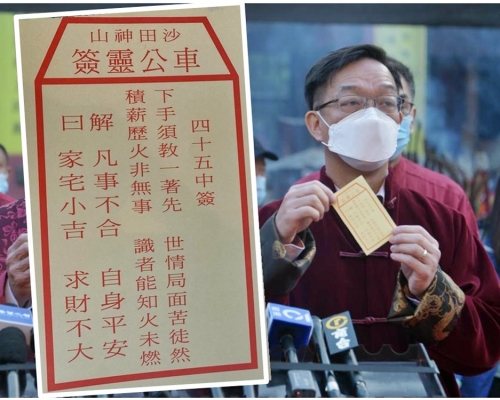 沙田神山
車公靈簽
四十五中簽
下手須教一著先　世情局面苦徒然
積薪歷火非無事　識者能知火未燃
解　凡事不合　自身平安
曰　家宅小吉　求財不大